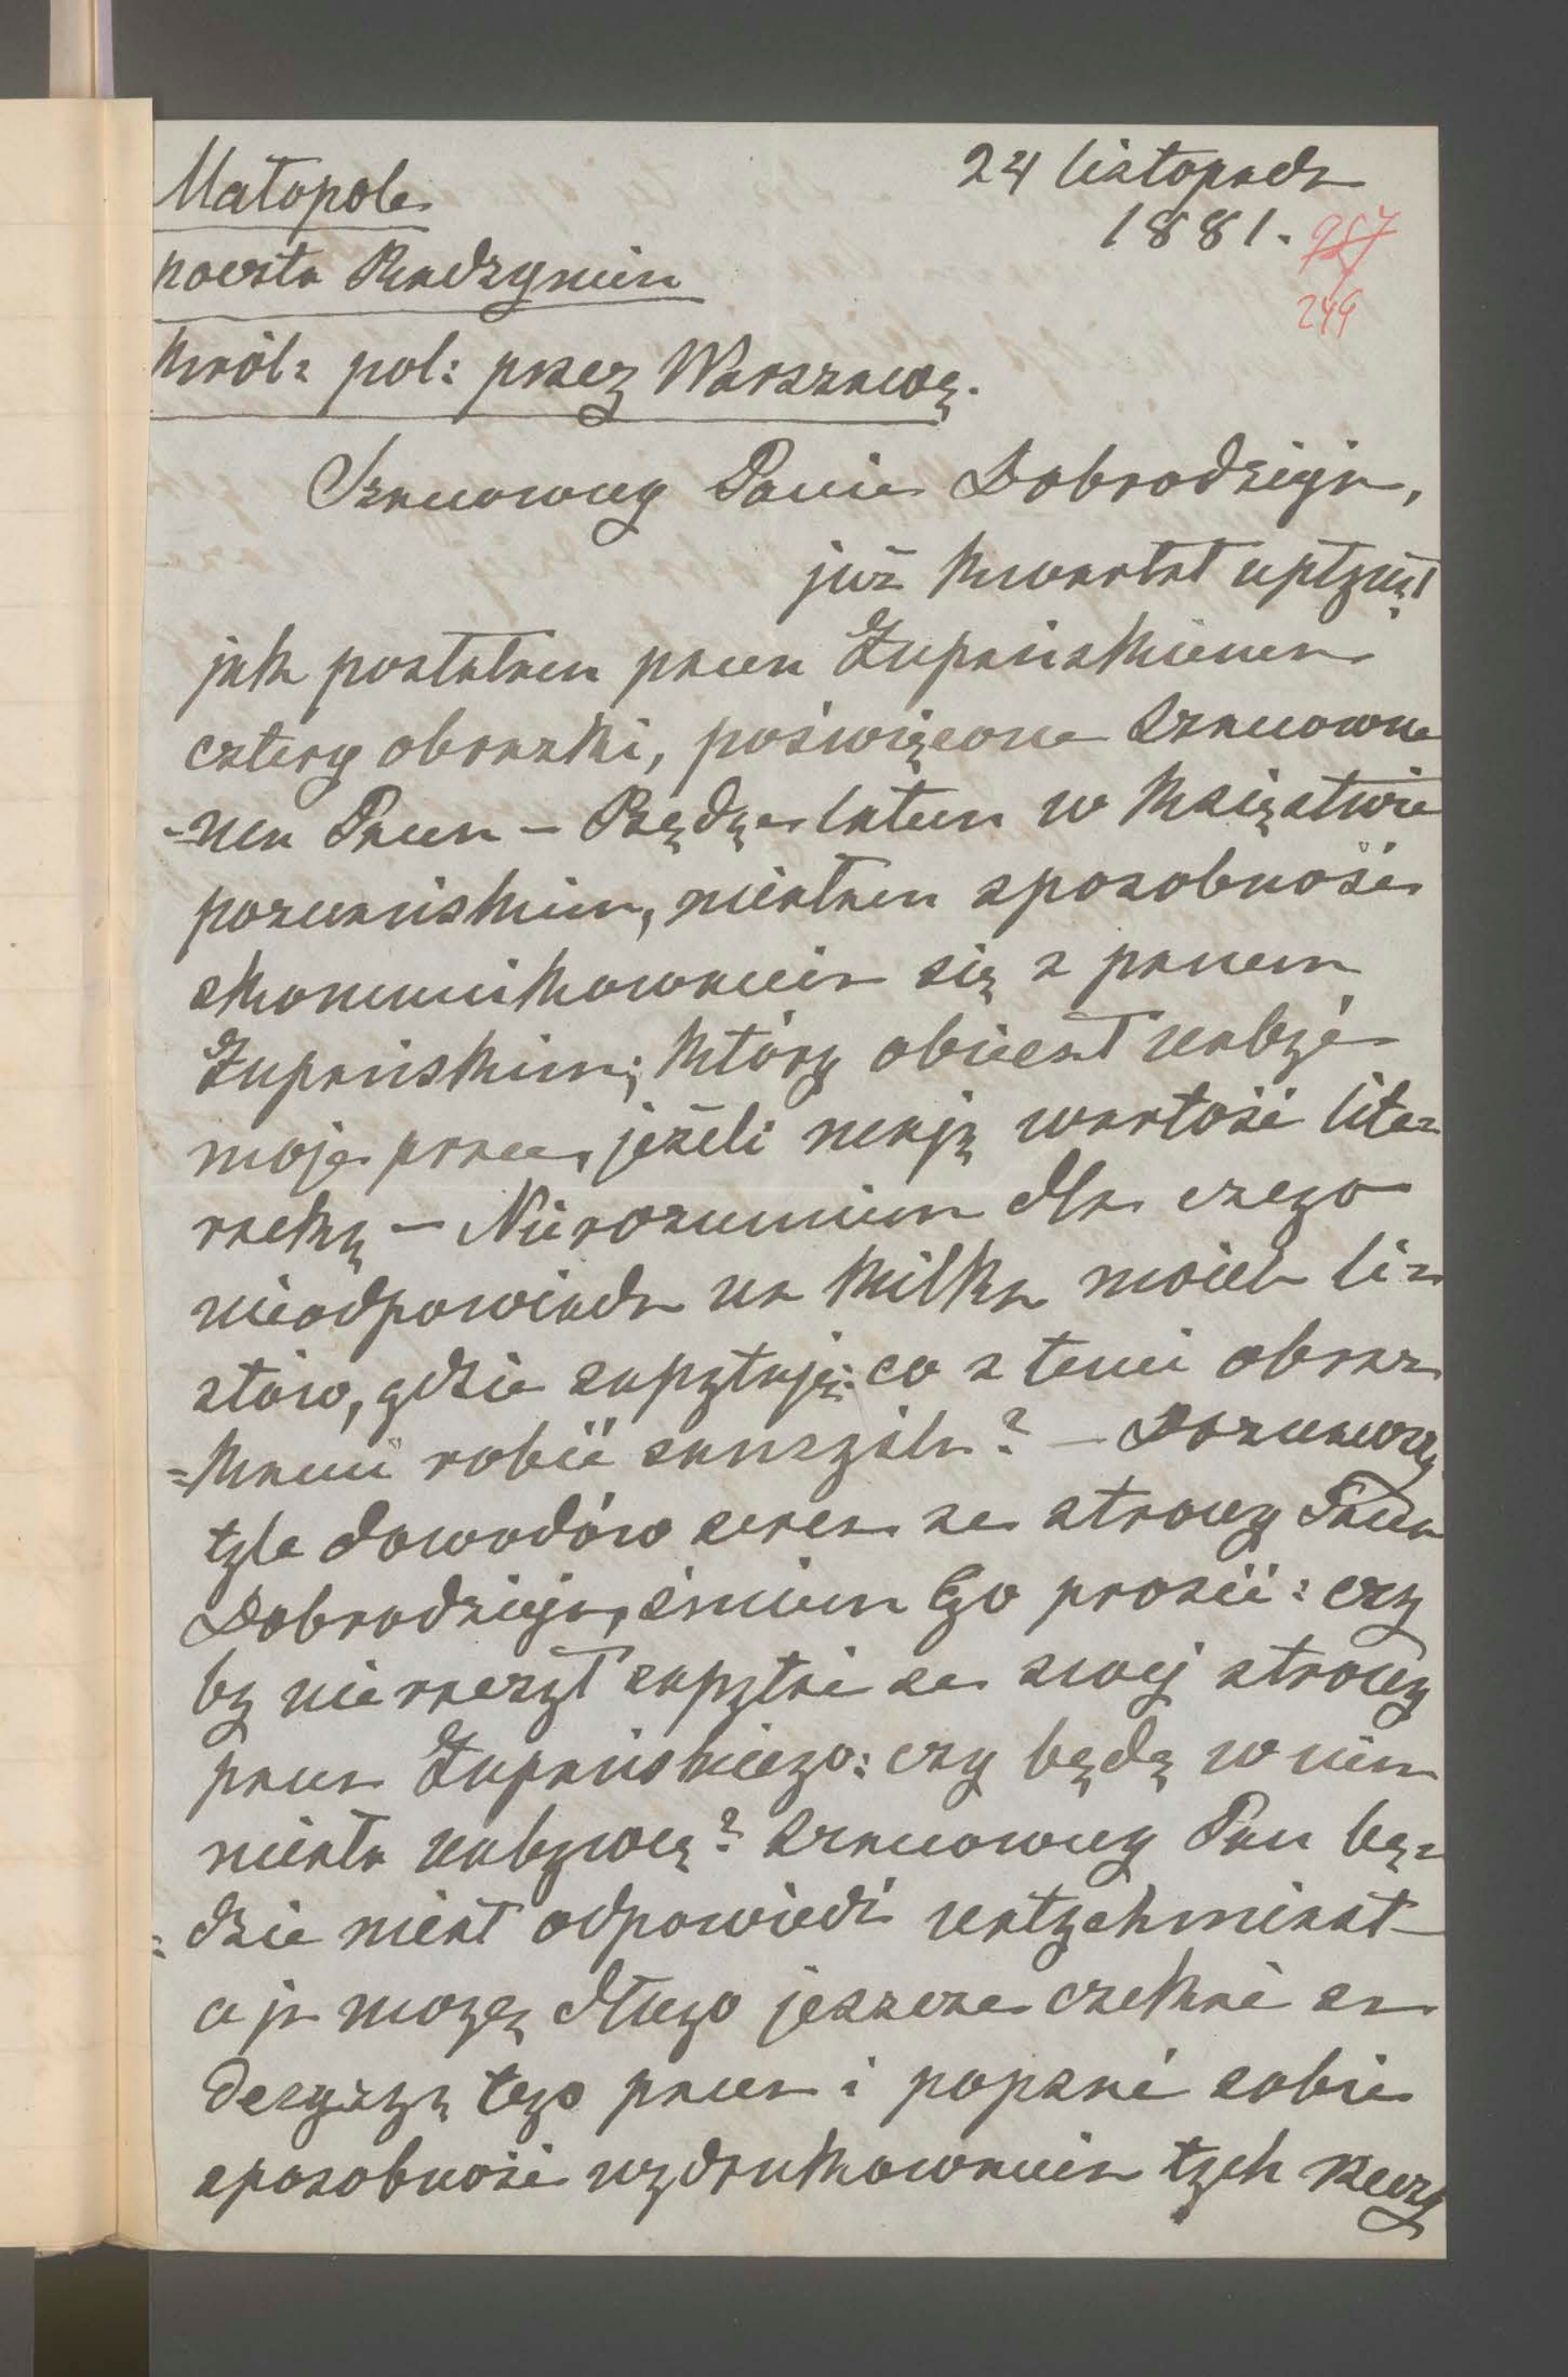 Małopole
24 listopada
1881.
257
249
poczta Radzymin
Król: pol: przez Warszawę.
Szanowny Panie Dobrodzieju,
już kwartał upłynął
jak posłałem panu Żupańskiemu
cztery obrazki, poświęcone szanowne
-mu Panu — Będąc latem w Księstwie
poznańskim, miałem sposobność
skomunikowania się z panem
Żupańskim; który obiecał nabyć
moje prace, jeżeli mają wartość lite=
racką — Nierozumiem dla czego
nieodpowiada na kilka moich li=
stów, gdzie zapytuję: co z temi obraz
=kami robić zamyśla? — Doznawszy
tyle dowodów serca ze strony Pana
Dobrodzieja, śmiem Go prosić: czy
by nie raczył zapytać ze swej strony
pana Żupańskiego: czy będę w nim
miała nabywcę? Szanowny Pan bę=
=dzie miał odpowiedź natychmiast
a ja mogę długo jeszcze czekać na
decyzyą tego pana i popsać sobie
sposobność wydrukowania tych rzeczy